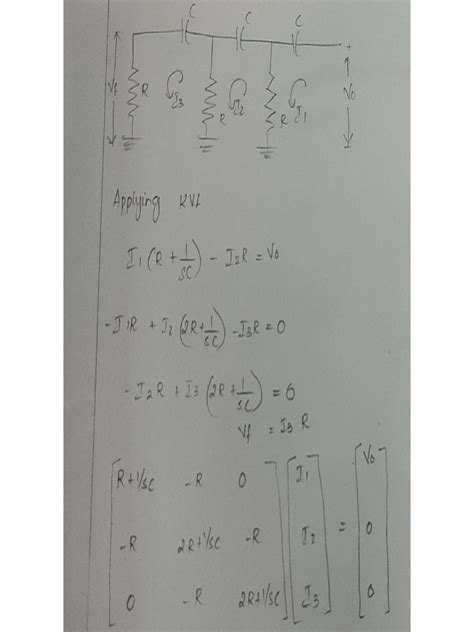 C C C
+
Vf R I3 R I2 R I1 Vo
Applying KVL
I1 (R + 1/SC) - I2R = Vo
-I1R + I2 (2R+1/SC) - I3R = 0
- I2R + I3 (2R+1/SC) = 0
Vf = I3 R
R+1/SC -R 0 I1 Vo
-R 2R+1/SC -R I2 = 0
0 -R 2R+1/SC I3 0